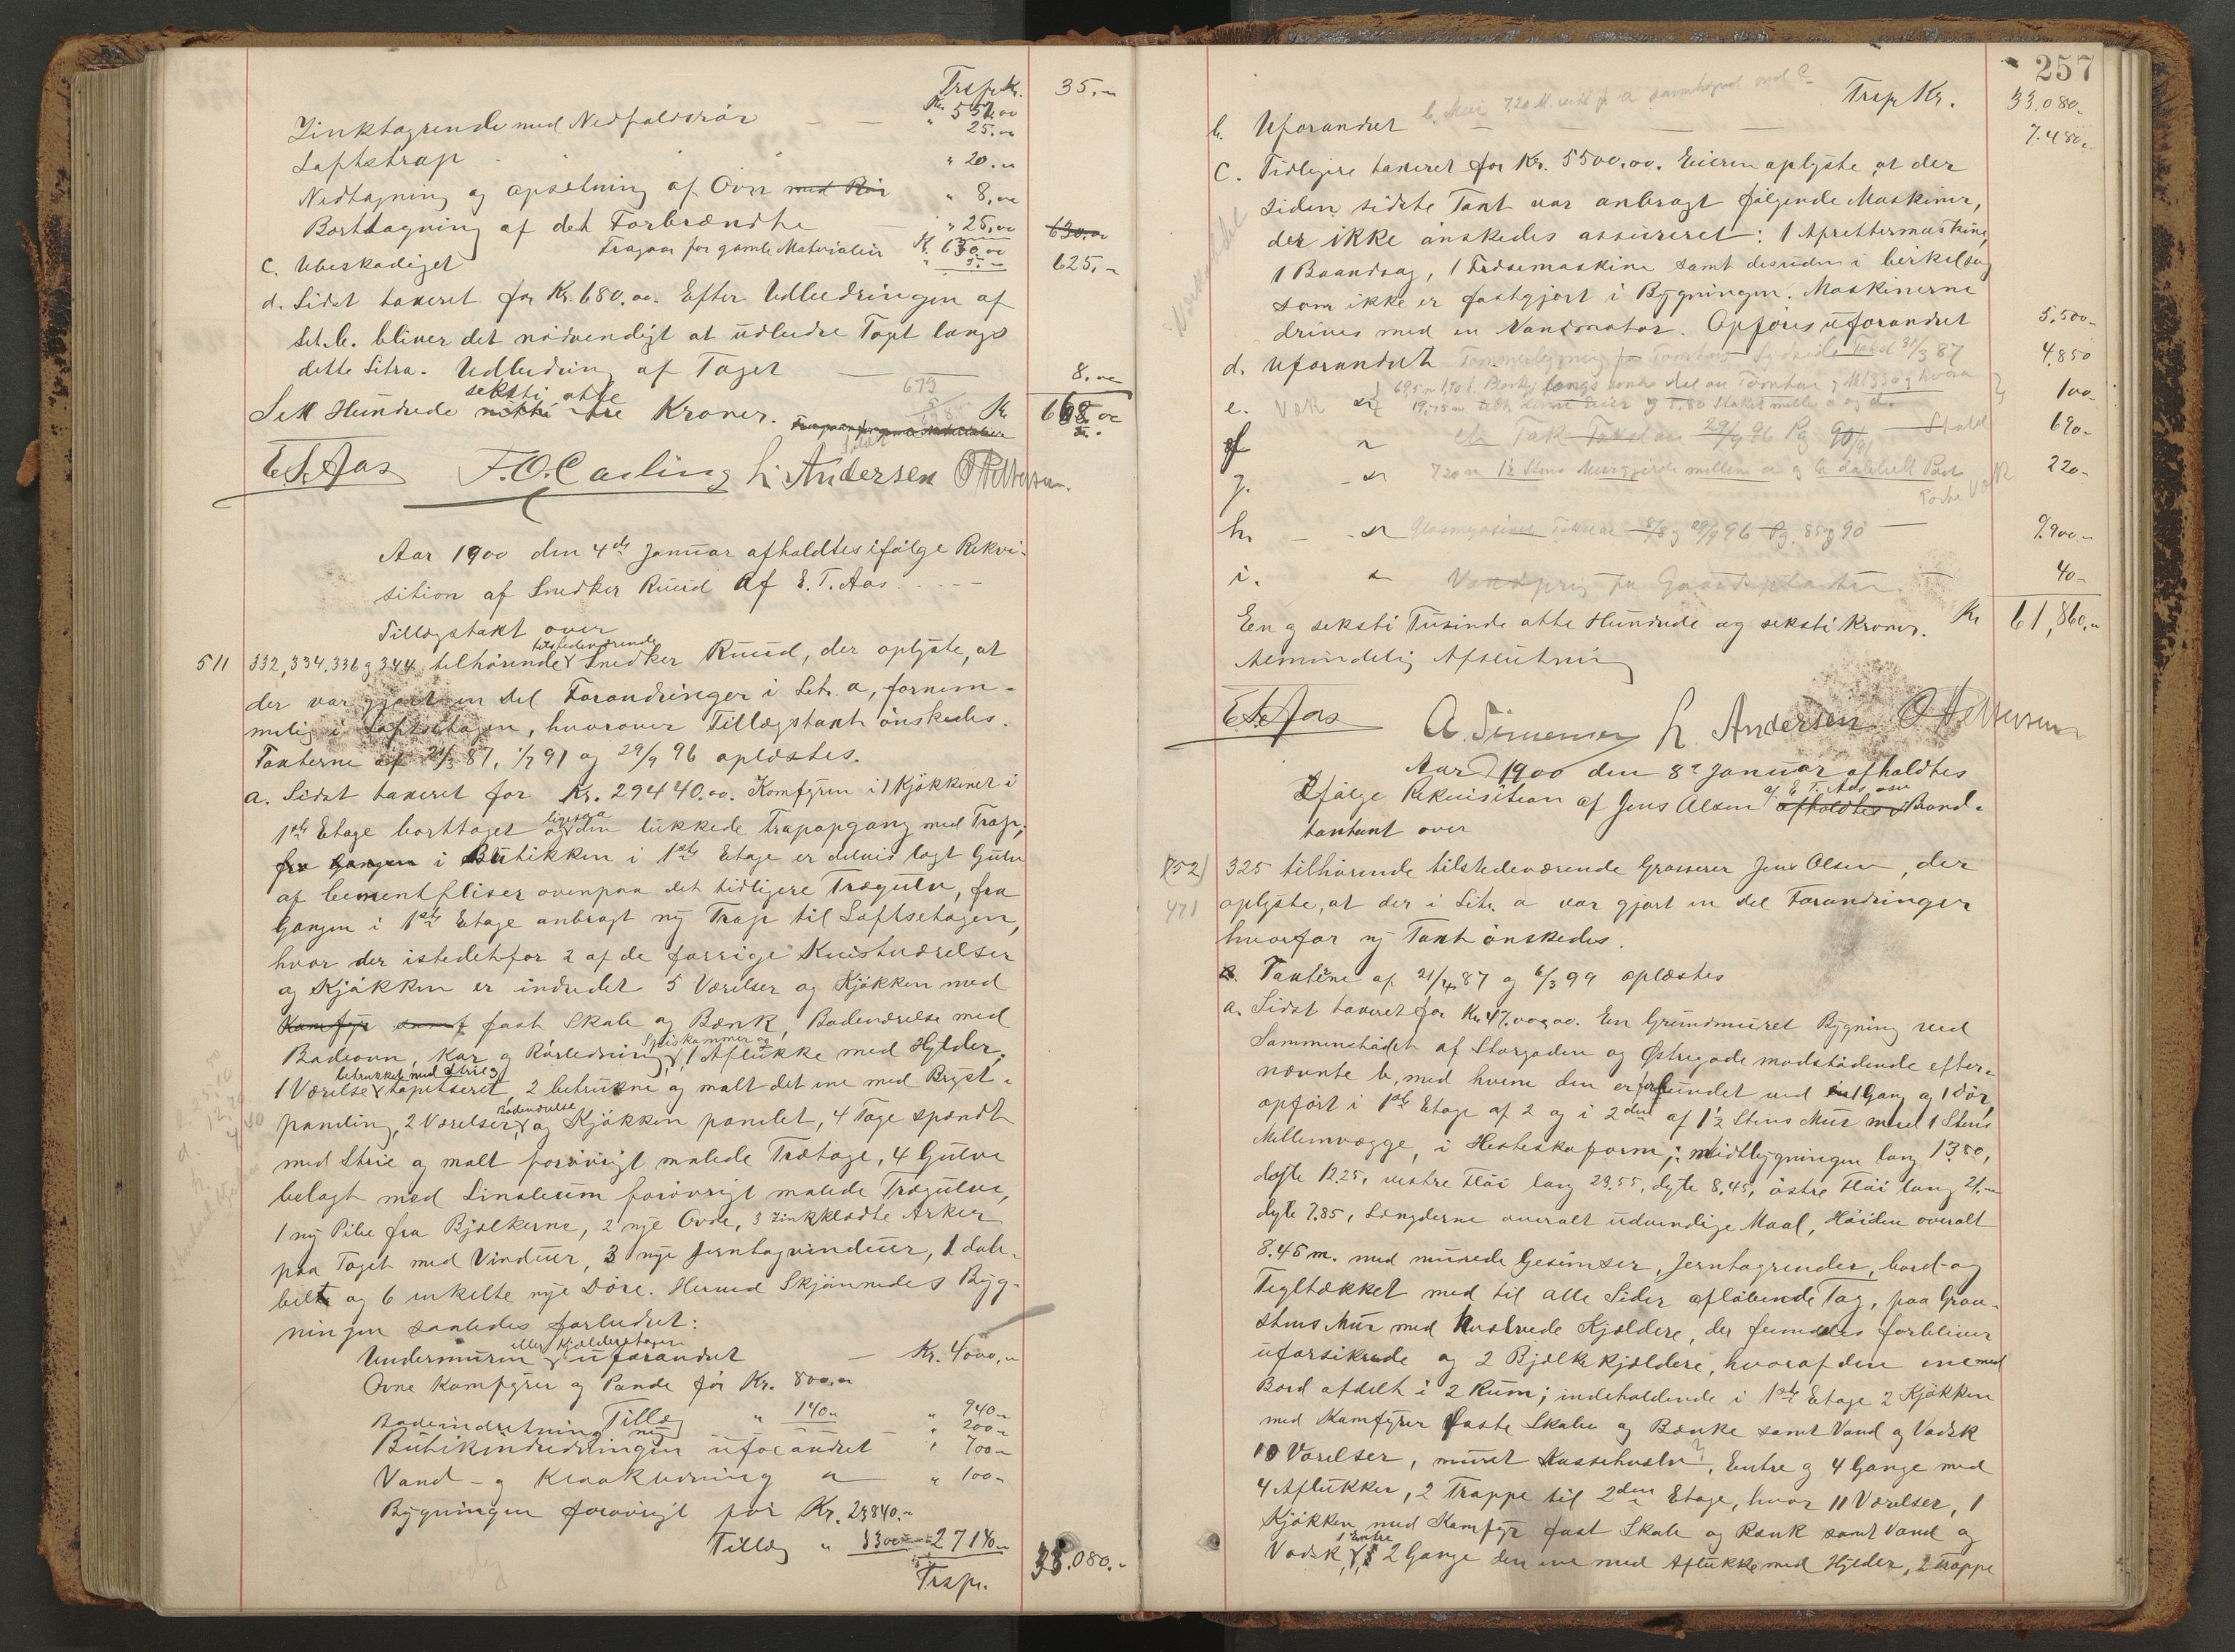 Trsp. Kr. 35.-
Kr. 552,00
Zinktagrende med Nedfaldsrør — — " 25.00
Loftstrap " 20.-
Nedtagning og opsetning af Ovn med Rør " 8,00
Borttagning af det Forbrændte " 25,00 630.00
Fragaar for gamle Materialier K. 630.00
5.- 625.-
c. Ubeskadiget
d. Sidst taxeret for Kr. 680.00. Efter Udbedringen af
Lit. b. bliver det nødvendigt at udbedre Taget langs
dette Litra. Udbedring af Taget — 8.00
seksti otte
Sex Hundrede Kroner. Kr
E. T. Aas F. O. Carling L. Andersen O. Pettersen.
Aar 1900 den 4de Januar afholdtes ifølge Rekvi-
sition af Snedker Ruud af E. T. Aas
Tillægstakt over
tilstedeværende
511 332, 334, 336 og 344 tilhørende Snedker Ruud, der oplyste, at
der var gjort en del Forandringer i Litr. a, fornem-
melig i Loftsetagen, hvorover Tillægstaxt ønskedes.
Taxterne af 21/3 87, 1/7 91 og 29/9 96 oplæstes.
a. Sidst taxeret for Kr. 29440.00. Komfyren i 1 Kjøkkenet i
ligesaa
1ste Etage borttaget og den lukkede Trapopgang med Trap;
fra Gangen i Butikken i 1ste Etage er delvis lagt Gulv
af Cementfliser ovenpaa det tidligere Trægulv, fra
Gangen i 1ste Etage anbragt ny Trap til Loftsetagen,
hvor der istedetfor 2 af de forrige Kvistværelser
og Kjøkken er indredet 5 Værelser og Kjøkken med
Komfyr samt fast Skab og Bænk, Badeværelse med
Spiskammer og
Badeovn, Kar og Rørledning, 1 Aflukke med Hylder,
betrukket med Strie og
1 Værelse tapetseret, 2 betrukne og malt det ene med Bryst-
Badeværelse
panling, 2 Værelser, og Kjøkken panelet, 4 Tage spændt
med Strie og malt forøvrigt malede Trætage, 4 Gulve
belagt med Linoleum forøvrigt malede Trægulve,
1 ny Pibe fra Bjælkerne, 2 nye Ovne, 3 zinkklædte Arker
paa Taget med Vinduer, 3 nye Jerntagvinduer, 1 dob-
belt og 6 enkelte nye Døre. Herved Skjønnedes Byg-
ningen saaledes forbedret:
eller Kjælderetagen
Undermuren uforandret — Kr. 4000,-
Ovne Komfyrer og Pande før Kr. 800.-
Tillæg " 140.- " 940.-
Badeindretning ny " 200-
Butikindredningen uforandret " 700-
Vand- og Kloakledning " 100-
Bygningen forøvrigt før Kr. 23840.-
Tillæg " 3300- 27140.-
Trsp. 33.080.-
257
Trsp. Kr. 33.080.-
b. Uforandret — — — 7.480.-
c. Tidligere taxeret for Kr. 5500.00. Eieren oplyste, at der
siden sidste Taxt var anbragt følgende Maskiner,
der ikke ønskedes assureret: 1 Aprettermaskine,
1 Baandsag, 1 Fræsemaskine samt desuden 1 Cirkelsag
som ikke er fastgjort i Bygningen. Maskinerne
drives med en Vandmotor. Opføres uforandret 5.500-
d. Uforandret 4.850
e. 100-
f 690-
g. 220-
h. 9.900.-
i. 40-
En og seksti Tusinde otte Hundrede og seksti Kroner. Kr 61,860.-
Almindelig Afslutning
E. T. Aas A. Simensen L. Andersen O. Pettersen
Aar 1900 den 8de Januar afholdtes
af E. T. Aas
Ifølge Rekvisition af Jens Olsen afholdtes Brand-
taxt over
(752) 325 tilhørende tilstedeværende Grosserer Jens Olsen, der
471 oplyste, at der i Litr. a var gjort en del Forandringer
hvorfor ny Taxt ønskedes.
Taxterne af 21/4 87 og 6/3 99 oplæstes
a. Sidst taxeret for Kr. 47.000,00. En Grundmuret Bygning ved
Sammenstødet af Storgaden og Østregade modstødende efter-
nævnte b, med hvem den er forbundet ved 1 Gang og 1 Dør,
opført i 1ste Etage af 2 og i 2den af 1½ Stens Mur med 1 Stens
Mellemvægge, i Hesteskoform; Midtbygningen lang 13.50,
dybte 12.25, vestre Fløi lang 23.55, dybte 8.45, østre Fløi lang 21.-
dybte 7.85, Længderne overalt udvendige Maal, Høiden overalt
8.45 m. med murede Gesimser, Jerntagrender, bord- og
Tegltækket med til alle Sider afløbende Tag, paa Graa-
stens Mur med hvælvede Kjældere, der fremdeles forbliver
uforsikrede og 2 Bjælkekjældere, hvoraf den ene med
Bord afdelt i 2 Rum; indeholdende i 1ste Etage 2 Kjøkken
med Komfyrer faste Skabe og Bænke samt Vand og Vadsk
10 Værelser, muret Kassehvælv, Entre og 4 Gange med
4 Aflukker, 2 Trappe til 2den Etage, hvor 11 Værelser, 1
Kjøkken med Komfyr fast Skab og Bænk samt Vand og
1 Entre
Vadsk, 2 Gange den ene med Aflukke med Hylder, 2 Trappe